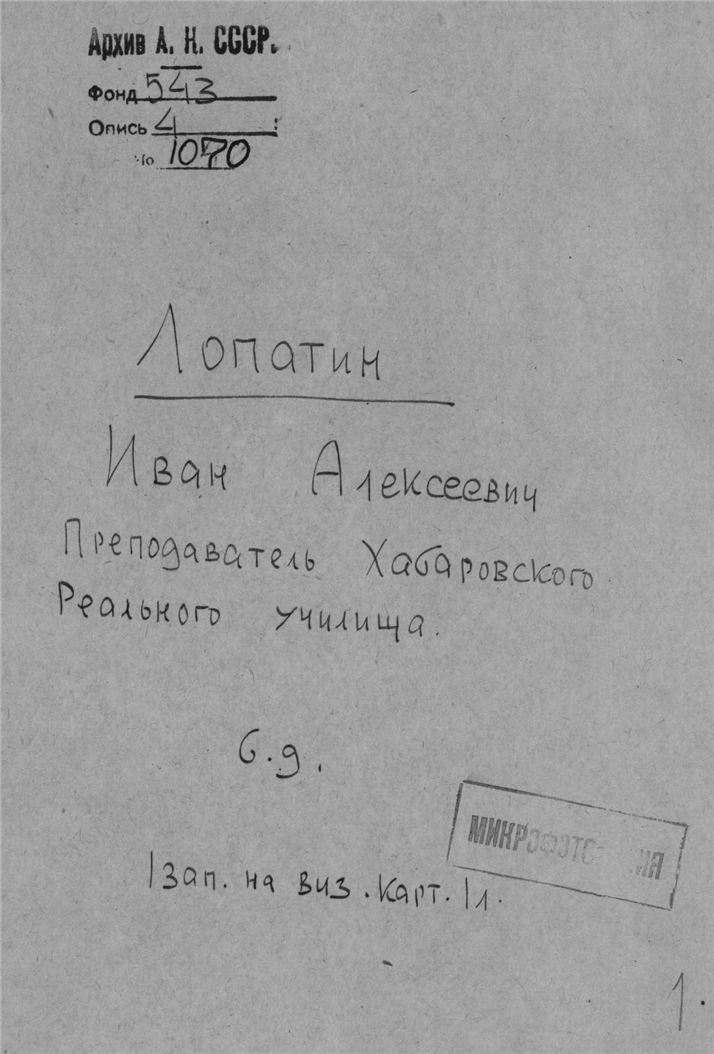 Архив А. Н. СССР.
Фонд 543
Опись 4
№ 1070
Лопатин
Иван Алексеевич
Преподаватель Хабаровского
Реального училища.
б.д.
1 зап. на виз. карт. 1 л.
1.